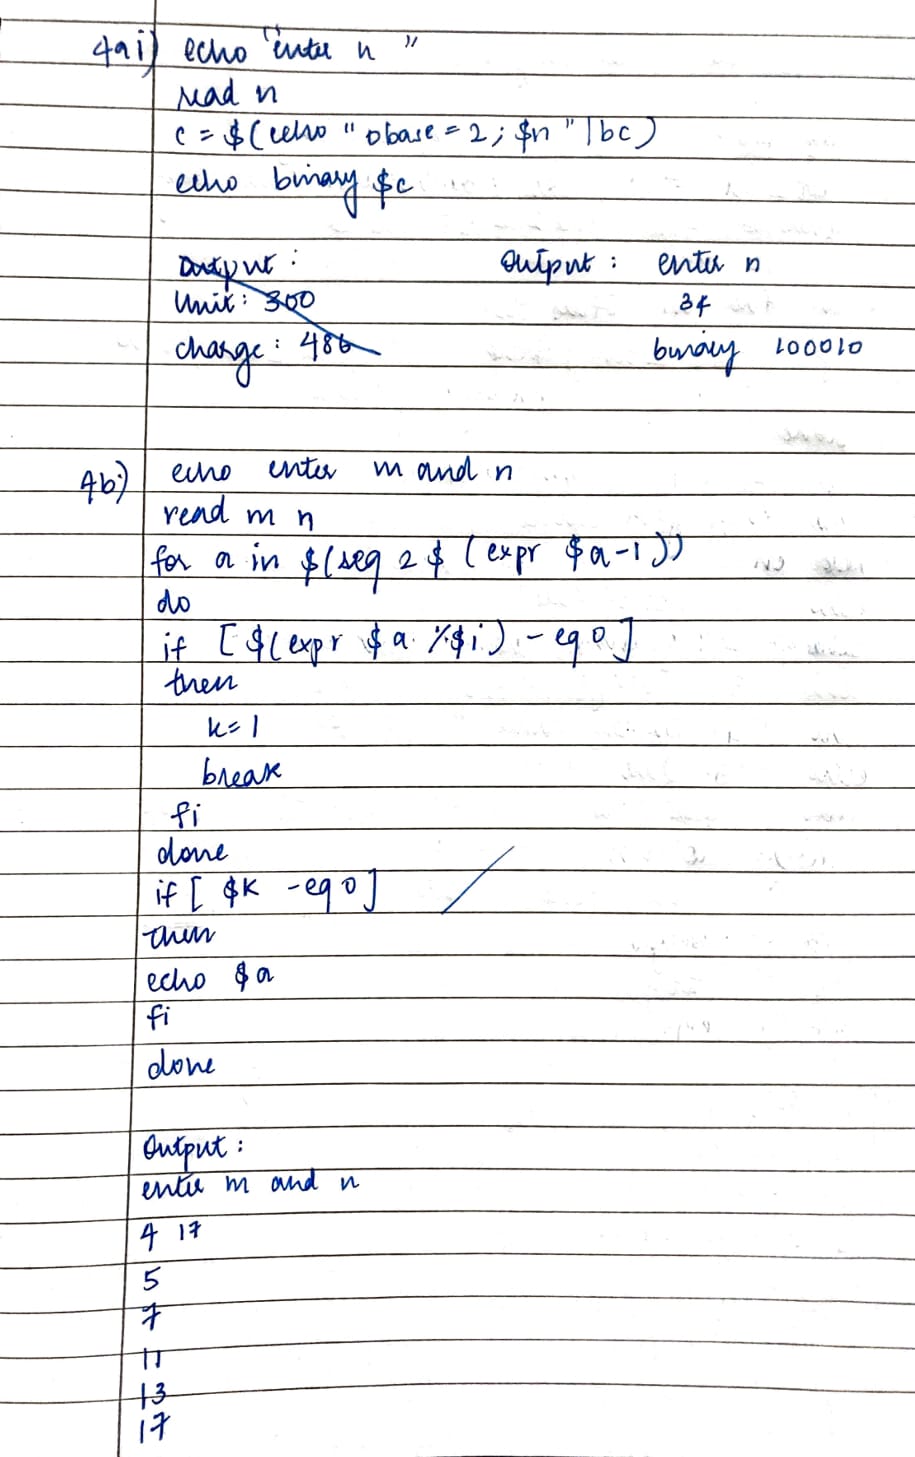 4ai) echo "enter n"
read n
c = $(echo "obase = 2; $n" | bc)
echo binary $c
Output :
Unit : 300
charge : 486
Output : enter n
34
binary 100010
4b) echo enter m and n
read m n
for a in $(seq 2 $ (expr $a-1))
do
if [$(expr $a % $i) -eq 0]
then
k=1
break
fi
done
if [ $k -eq 0]
then
echo $a
fi
done
Output :
enter m and n
4 17
5
7
11
13
17